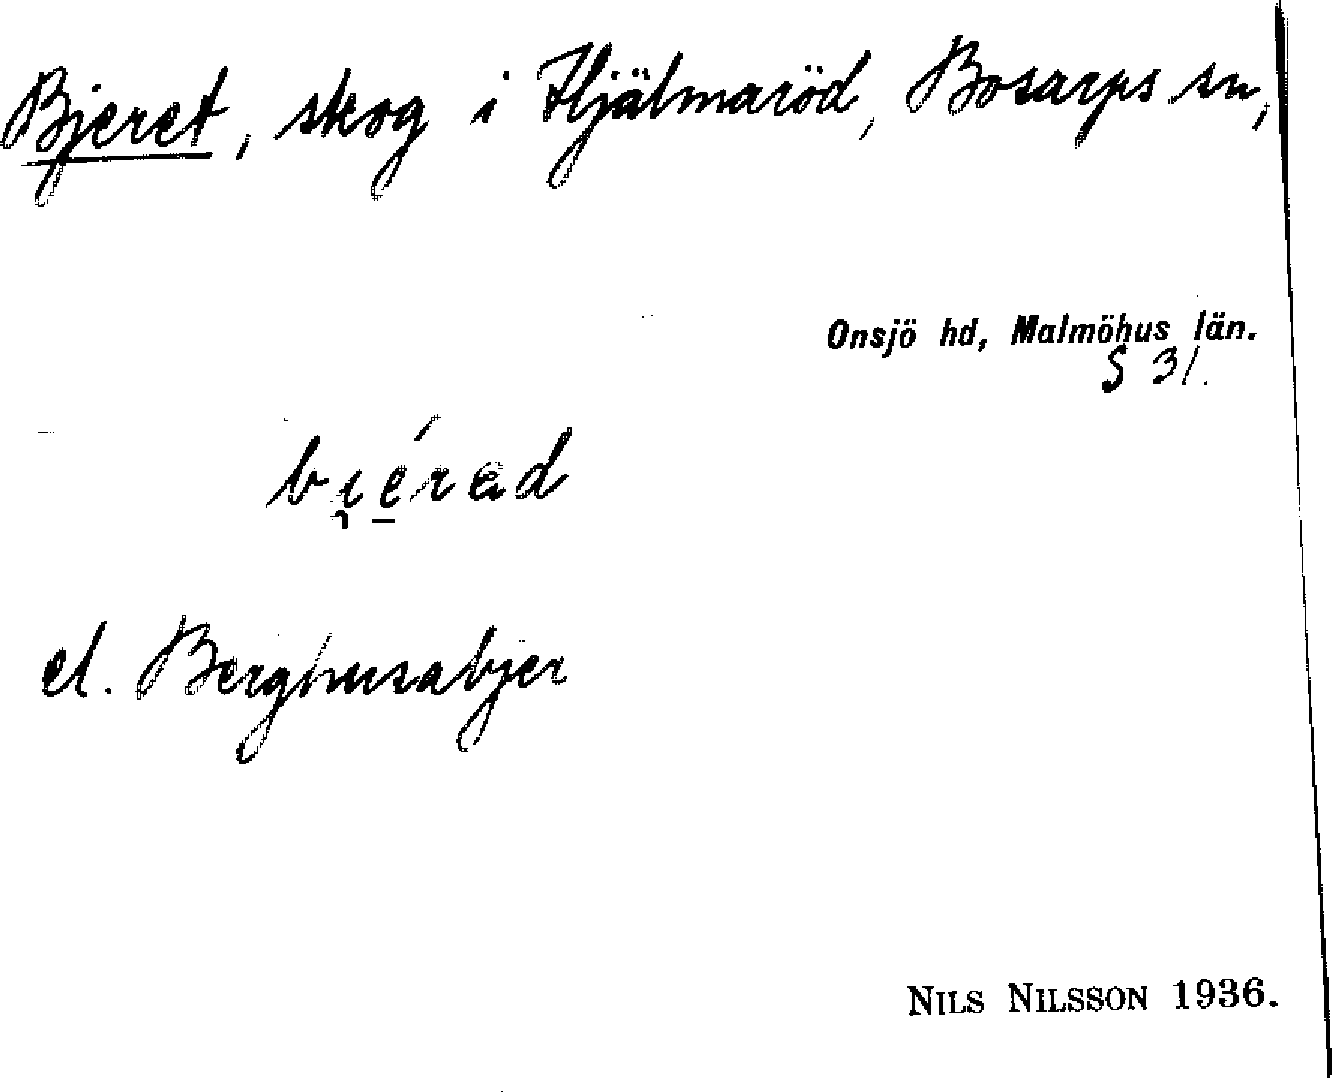 Bjeret, skog i Hjälmaröd, Bosarps sn,
Onsjö hd, Malmöhus län.
S 31.
el. Berghusabjer
NILS NILSSON 1936.